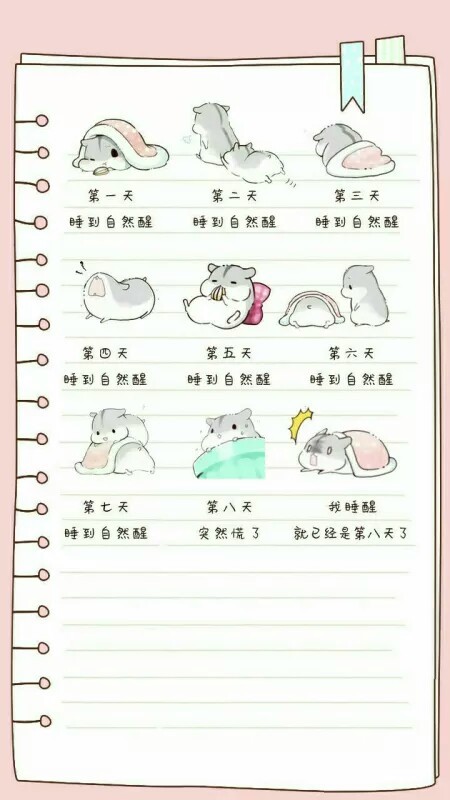 第一天 第二天 第三天
睡到自然醒 睡到自然醒 睡到自然醒
第四天 第五天 第六天
睡到自然醒 睡到自然醒 睡到自然醒
第七天 第八天 我睡醒
睡到自然醒 突然慌了 就已经是第八天了